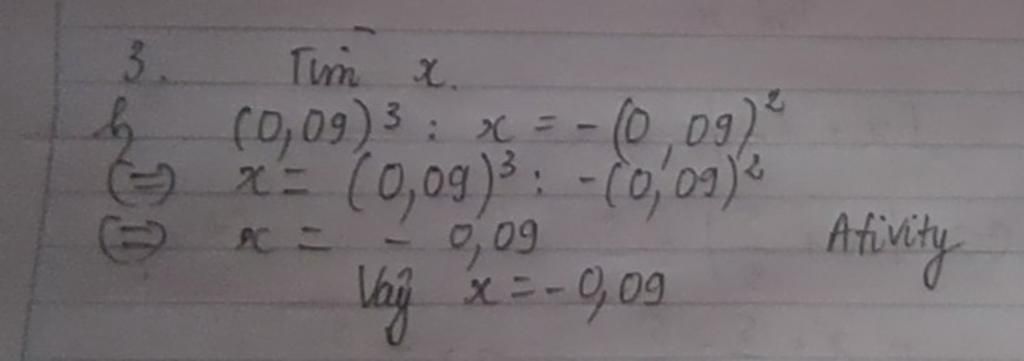 3. Tìm x.
b, (0,09)³ : x = -(0,09)²
(=) x = (0,09)³ : -(0,09)²
(=) x = - 0,09 Afivity
Vậy x = -0,09